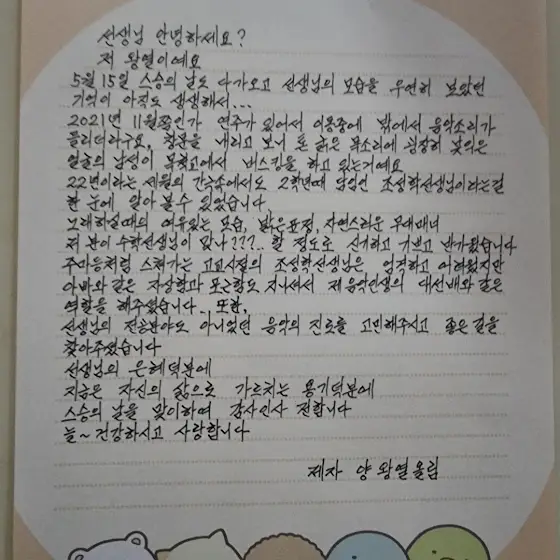 선생님 안녕하세요?
저 왕열이예요
5월 15일 스승의 날도 다가오고 선생님의 모습을 우연히 보았던
기억이 아직도 생생해서...
2021년 11월쯤인가 연주가 있어서 이동중에 밖에서 음악소리가
들리더라구요, 창문을 내리고 보니 톤 굵은 목소리에 굉장히 낯익은
얼굴의 남성이 북척교에서 버스킹을 하고 있는거예요
22년이라는 세월의 간극속에서도 2학년때 담임인 조성학선생님이라는걸
한 눈에 알아 볼수 있었습니다,
노래하실때의 여유있는 모습, 밝은표정, 자연스러운 무대매너
저 분이 수학선생님이 맞나???.. 할 정도로 신기하고 기쁘고 반가웠습니다
주마등처럼 스쳐가는 고교시절의 조성학선생님은 엄격하고 어려웠지만
아빠와 같은 자상함과 포근함도 지니셔서 제 음악인생의 대선배와 같은
역할을 해주셨습니다. 또한,
선생님의 전공분야도 아니었던 음악의 진로를 고민해주시고 좋은길을
찾아주셨습니다
선생님의 은혜덕분에
지금은 자신의 삶으로 가르치는 용기덕분에
스승의 날을 맞이하여, 감사인사 전합니다
늘~ 건강하시고 사랑합니다
제자 양왕열올림